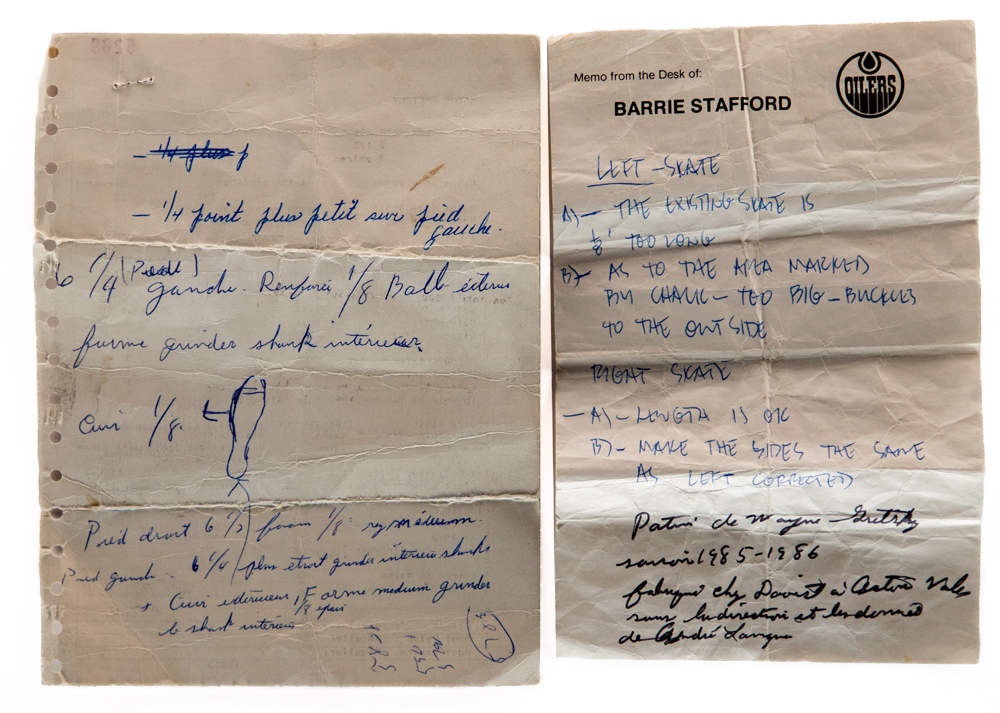 5288
- 1/4 plus p
- 1/4 point plus petit sur pied
gauche.
6 1/4 (Pied)
gauche. Renforci 1/8 Ball externe
forme grinder shank intérieur
Cuir 1/8.
Pied droit 6 1/2 foam 1/8
Pied gauche - 6 1/4 plus étroit grinder intérieur shank
+ Cuir extérieur, Forme medium grinder
1/8 epais
le shank interieur
Memo from the Desk of:
BARRIE STAFFORD
OILERS
LEFT - SKATE
A) - THE EXISTING SKATE IS
1/8" TOO LONG
B) - AS TO THE AREA MARKED
BY CHALK - TOO BIG - BUCKLES
TO THE OUTSIDE
RIGHT SKATE
- A) - LENGTH IS OK
B) - MAKE THE SIDES THE SAME
AS LEFT CORRECTED
Patin de Wayne Gretzky
saison 1985-1986
fabriqué chez Daoust à Acton Vale
sous la direction et les données
de André